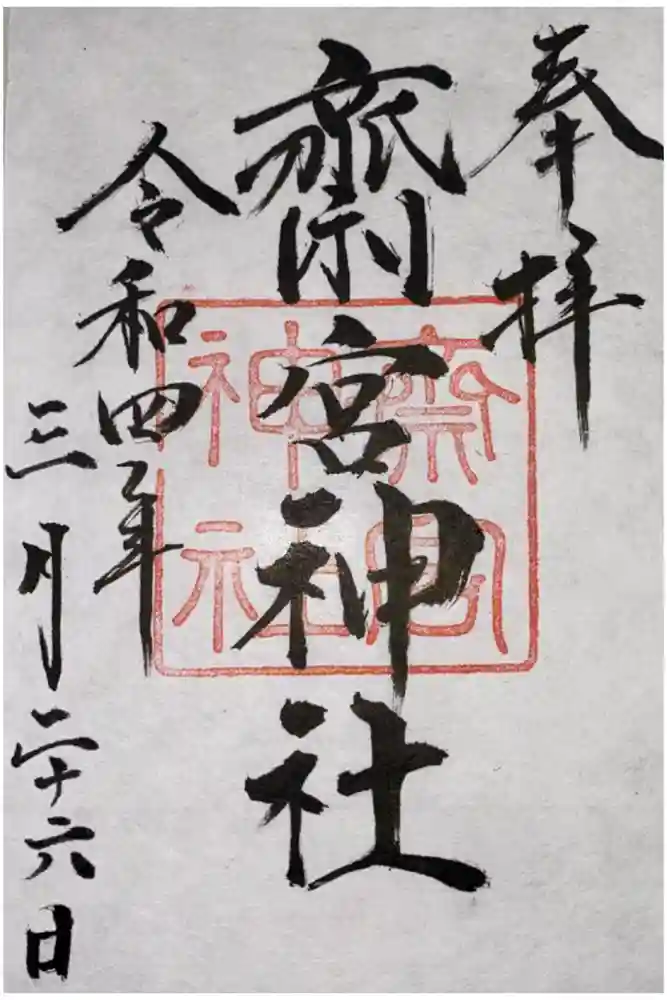 奉拝
齋宮神社
斎宮
神社
令和四年
三月二十六日